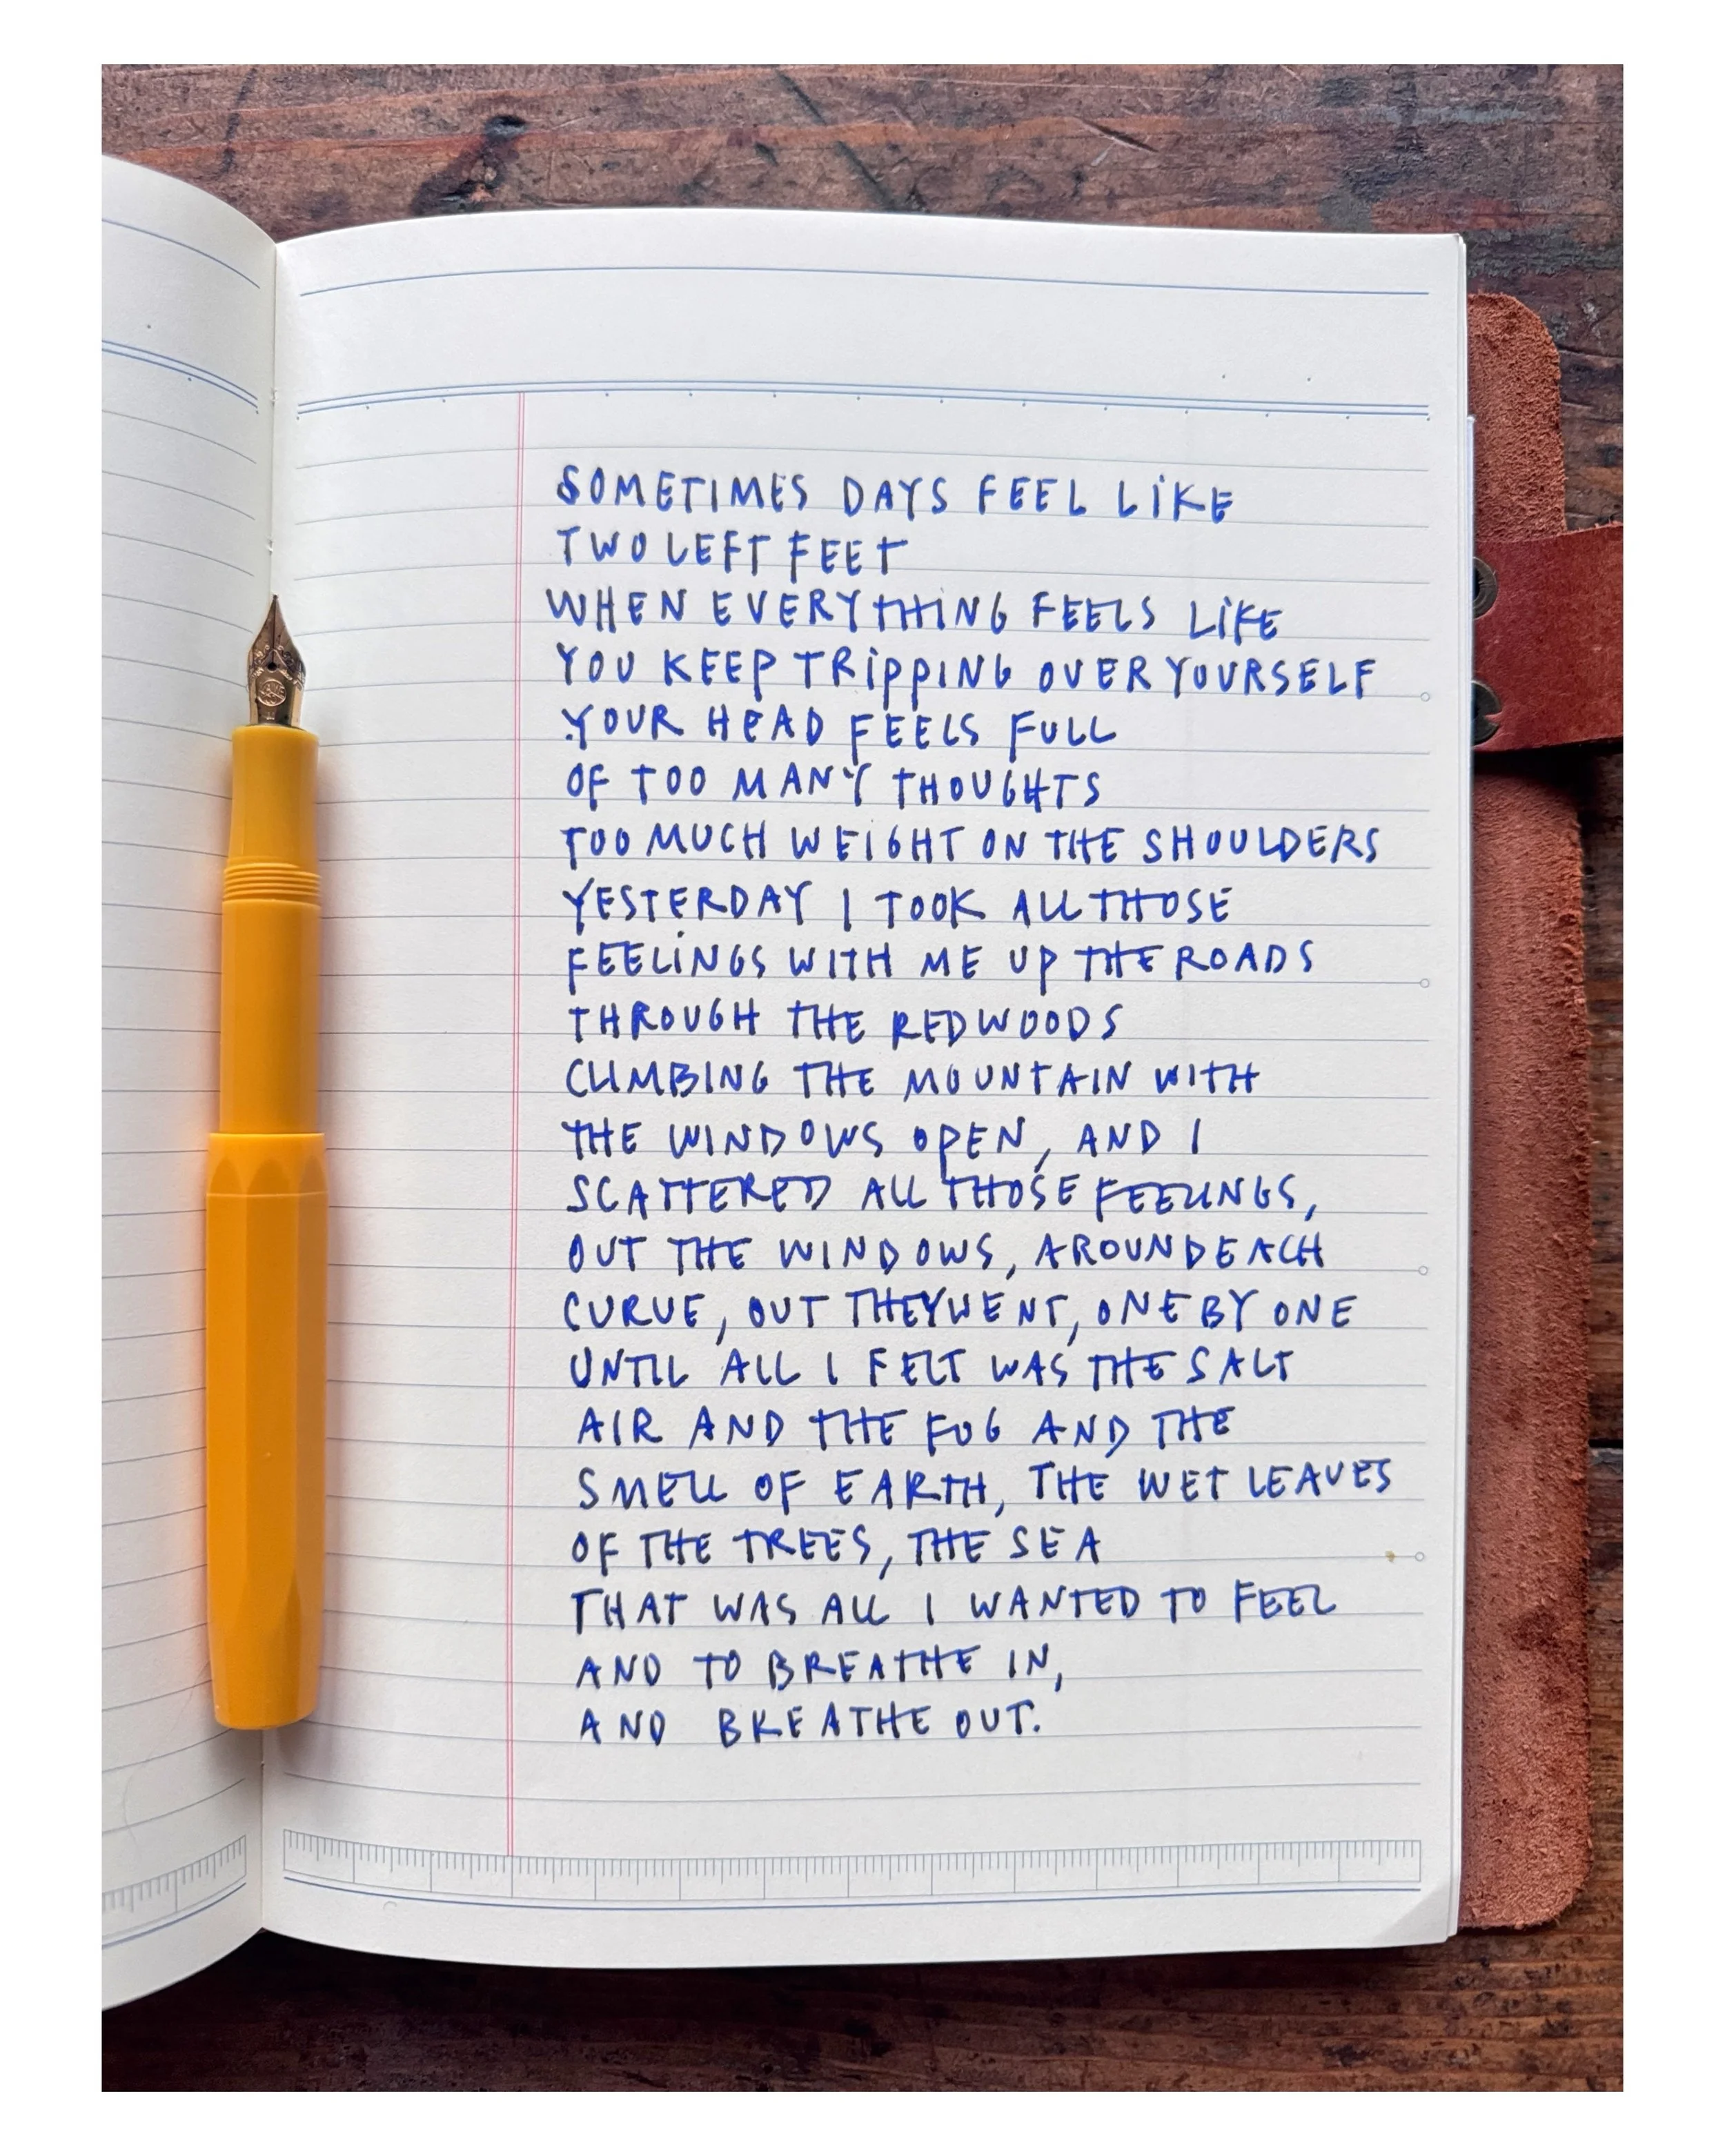 SOMETIMES DAYS FEEL LIKE
TWO LEFT FEET
WHEN EVERYTHING FEELS LIKE
YOU KEEP TRIPPING OVER YOURSELF
YOUR HEAD FEELS FULL
OF TOO MANY THOUGHTS
TOO MUCH WEIGHT ON THE SHOULDERS
YESTERDAY I TOOK ALL THOSE
FEELINGS WITH ME UP THE ROADS
THROUGH THE REDWOODS
CLIMBING THE MOUNTAIN WITH
THE WINDOWS OPEN, AND I
SCATTERED ALL THOSE FEELINGS,
OUT THE WINDOWS, AROUND EACH
CURVE, OUT THEY WENT, ONE BY ONE
UNTIL ALL I FELT WAS THE SALT
AIR AND THE FOG AND THE
SMELL OF EARTH, THE WET LEAVES
OF THE TREES, THE SEA
THAT WAS ALL I WANTED TO FEEL
AND TO BREATHE IN,
AND BREATHE OUT.